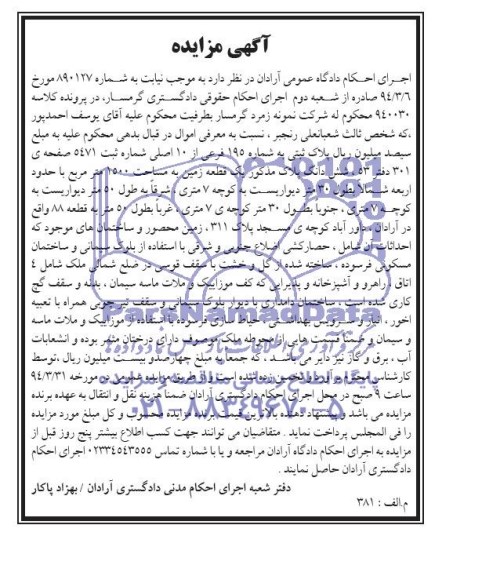 آگهی مزایده
اجرای احکام دادگاه عمومی آرادان در نظر دارد به موجب نیابت به شماره ۸۹۰۱۲۷ مورخ
۹۴/۳/۶ صادره از شعبه دوم اجرای احکام حقوقی دادگستری گرمسار، در پرونده کلاسه
۹۴۰۰۳۰ محکوم له شرکت نمونه زمرد گرمسار بطرفیت محکوم علیه آقای یوسف احمدپور
،که شخص ثالث شعبانعلی رنجبر ، نسبت به معرفی اموال در قبال بدهی محکوم علیه به مبلغ
سیصد میلیون ریال پلاک ثبتی به شماره ۱۹۵ فرعی از ۱۰ اصلی شماره ثبت ۵۴۷۱ صفحه ی
۳۰۱ دفتر ۵۳ ، شش دانگ پلاک مذکور یک قطعه زمین به مساحت ۱۵۰۰ متر مربع با حدود
اربعه شمالاً بطول ۳۰ متر دیواریست به کوچه ۷ متری ، شرقاً به طول ۵۰ متر دیواریست به
کوچه ۷ متری ، جنوبا بطول ۳۰ متر کوچه ی ۷ متری ، غربا بطول ۵۰ متر به قطعه ۸۸ واقع
در آرادان ، داور آباد کوچه ی مسجد پلاک ۳۱۱، زمین محصور و ساختمان های موجود که
احداثات آن شامل ، حصارکشی اضلاع جنوبی و شرقی با استفاده از بلوک سیمانی و ساختمان
مسکونی فرسوده ، ساخته شده از گل و خشت با سقف قوسی در ضلع شمالی ملک شامل ۴
اتاق ، راهرو و آشپزخانه و پذیرایی که کف موزاییک و ملات ماسه سیمان ، بدنه و سقف گچ
کاری شده است ، ساختمان دامداری با دیوار بلوک سیمانی و سقف تیرچوبی همراه با تعبیه
آخور ، انبار و سرویس بهداشتی ، حیاط سازی فرسوده با استفاده از موزاییک و ملات ماسه
و سیمان و ضمنا قسمت هایی از محوطه ملک موصوف دارای درختان مثمر بوده و انشعابات
آب ، برق و گاز نیز دایر می باشد ، که جمعا به مبلغ چهارصدو بیست میلیون ریال ،توسط
کارشناس محترم برآورد و تخمین زده شده است را از طریق مزایده حضوری در مورخه ۹۴/۳/۳۱
ساعت ۹ صبح در محل اجرای احکام دادگستری آرادان ضمنا هزینه نقل و انتقال به عهده برنده
مزایده می باشد و پیشنهاد دهنده بالاترین قیمت برنده مزایده محسوب و کل مبلغ مورد مزایده
را فی المجلس پرداخت نماید . متقاضیان می توانند جهت کسب اطلاع بیشتر پنج روز قبل از
مزایده به اجرای احکام دادگاه آرادان مراجعه و یا با شماره تماس ۰۲۳۳۴۵۴۳۵۵۵ اجرای احکام
دادگستری آرادان حاصل نمایند .
دفتر شعبه اجرای احکام مدنی دادگستری آرادان / بهزاد پاکار
م.الف : ۳۸۱
PartNamadData